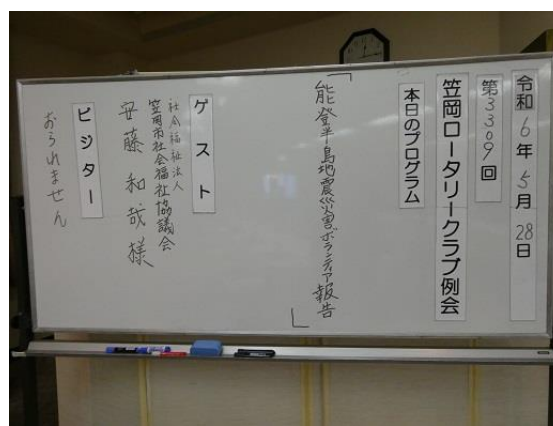 令和6年5月28日
第3309回
笠岡ロータリークラブ例会
本日のプログラム
「能登半島地震災害ボランティア報告」
ゲスト
社会福祉法人
笠岡市社会福祉協議会
安藤 和哉 様
ビジター
おられません